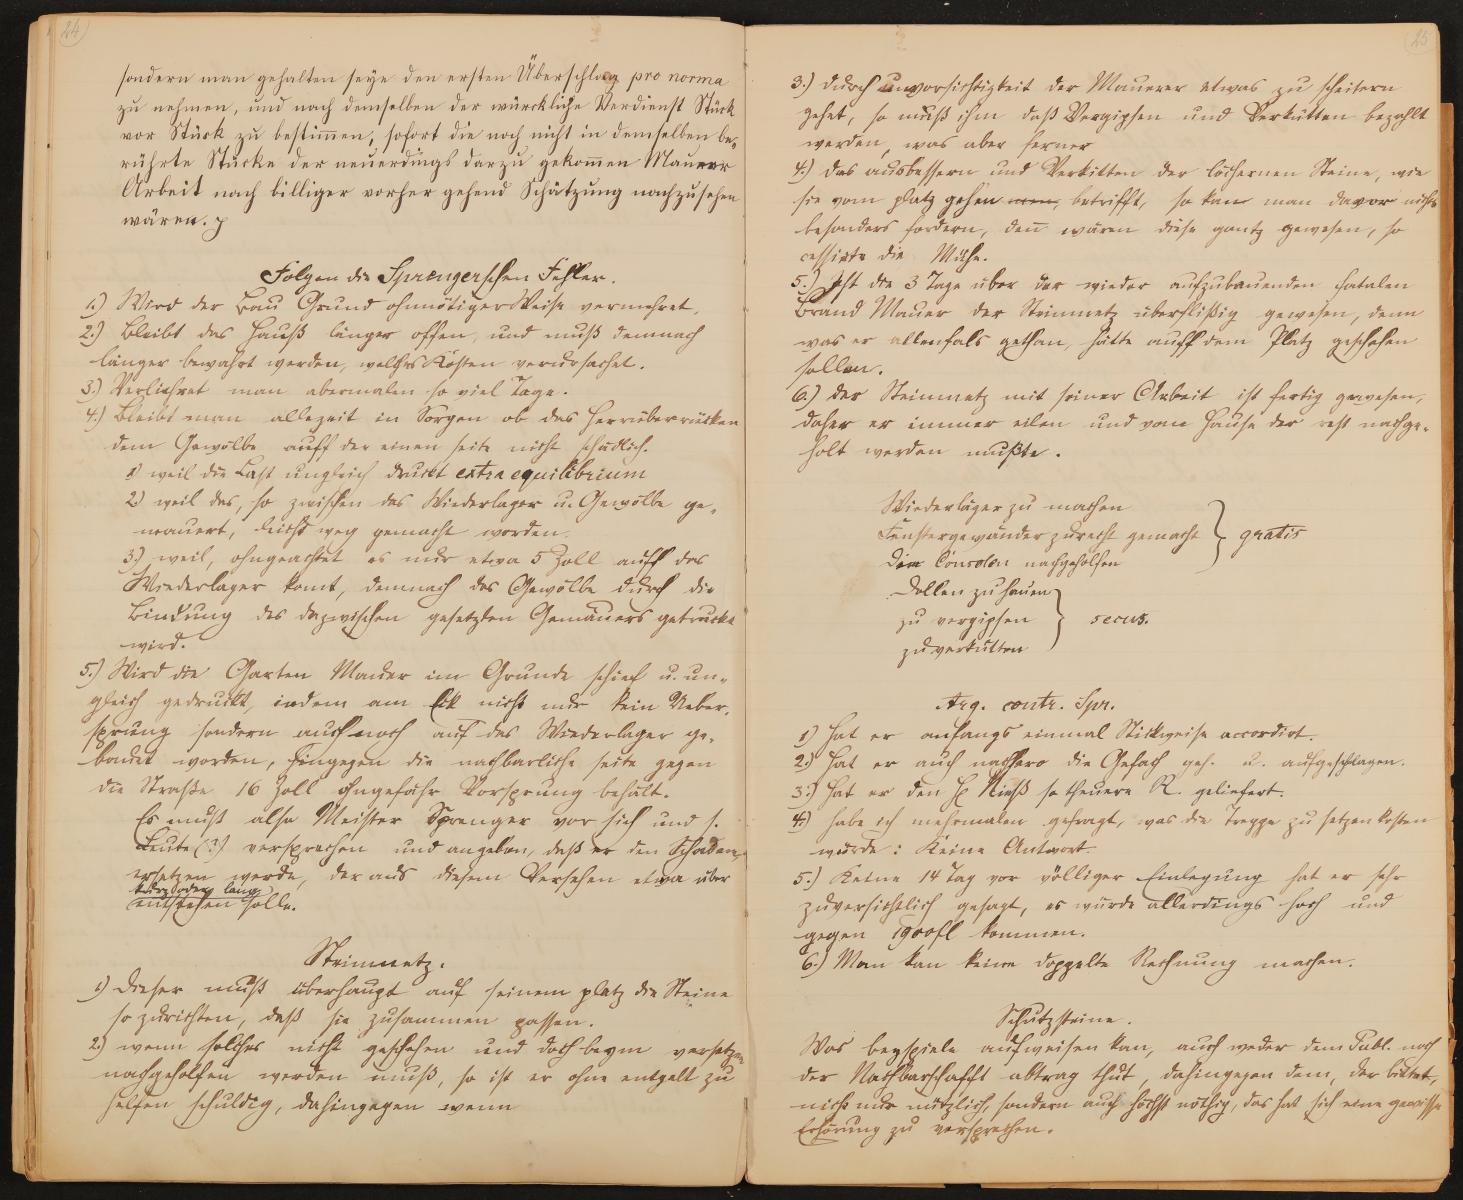 24
sondern man gehalten seye den ersten Überschlag pro norma
zu nehmen, und nach demselben der würckliche Verdienst Stück
vor Stück zu bestim̄en, sofort die noch nicht in demselben be-
rührte Stücke der neuerdings darzu gekom̄en Maurer
Arbeit nach billiger vorher gehend Schätzung nachzusehen
wären.
Folgen die Sprengerschen Fehler.
1.) Wird der Bau Grund ohnnötiger Weise vermehret.
2.) Bleibt das Hauß länger offen, und muß demnach
länger bewahrt werden, welches Kosten verursachet.
3.) Verliehret man abermalen so viel Tage.
4.) Bleibt man allezeit in Sorgen ob das Herrüberrücken
dem Gewölbe auff der einen seite nicht schädlich.
1) weil die Last ungleich druckt extra equilibrium
2) weil das, so zwischen das Wiederlager u. Gewölbe ge-
mauert, leicht weg gemacht worden.
3.) weil, ohngeachtet es nur etwa 5 Zoll auff das
Wiederlager komt, demnach das Gewölbe durch die
Bindung des dazwischen gesetzten Gemäuers getruckt
wird.
5.) Wird die Garten Mauer im Grunde schief u. un-
gleich gedruckt, indem am Eck nicht nur kein Ueber-
sprung sondern auch noch auf das Wiederlager ge-
bauet worden, hingegen die nachbarliche seite gegen
die Straße 16 Zoll ohngefähr Vorsprung behält.
Es muß also Meister Sprenger vor sich und s.
Leute (?) versprechen und angeben, daß er den Schaden
ersetzen werde, der aus diesem Versehen etwa über
kurz oder lang
entstehen solle.
Steinmetz.
1) Dieser muß überhaupt auf seinem platz die Steine
so zurichten, daß sie zusammen passen.
2.) wenn solches nicht geschehen und doch beym versetzen
nachgeholfen werden muß, so ist er ohne entgelt zu
helfen schuldig, dahingegen wenn
25
3.) durch unvorsichtigkeit der Maurer etwas zu scheitern
gehet, so muß ihm daß Vergipsen und Verkütten bezahlt
werden, was aber ferner
4.) das ausbessern und Verkitten der löchernen Steine, wie
sie vom platz gehen, betrifft, so kan man davor nichts
besonders fordern, den̄ wären diese gantz gewesen, so
cessirte die Mühe.
5.) Ist die 3 Tage über der wieder aufzubauenden fatalen
Brand Mauer der Steinmetz überflüßig gewesen, denn
was er allenfals gethan, hätte auff dem Platz geschehen
sollen.
6.) der Steinmetz mit seiner Arbeit ist fertig gewesen,
daher er immer eilen und vom Hause der rest nachge-
holt werden mußte.
Wiederläger zu machen
Fenstergewänder zurecht gemacht } gratis
Den Consolen nachgeholfen
Dollen zu hauen
zu vergipsen } secus.
zu verkütten
Arg. contr. Spr.
1) Hat er anfangs einmal Stückweise accordirt.
2.) Hat er auch nachhero die Gefach geh. u. aufgeschlagen.
3.) Hat er den H. Rieß so theuere R. geliefert.
4.) habe ich mehrmalen gefragt, was die Treppe zu setzen kosten
würde: Keine Antwort
5.) Keine 14 Tag vor völliger Einlegung hat er sehr
zuversichtlich gesagt, es würde allerdings hoch und
gegen 1900fl kommen.
6.) Man kan keine doppelte Rechnung machen.
Schutzsteine.
Was beyspiele aufweisen kan, auch weder dem Publ. noch
der Nachbarschafft abtrag thut, dahingegen dem, der bittet,
nicht nur nützlich, sondern auch höchst nöthig, das hat sich eine gewisse
Erhörung zu versprechen.